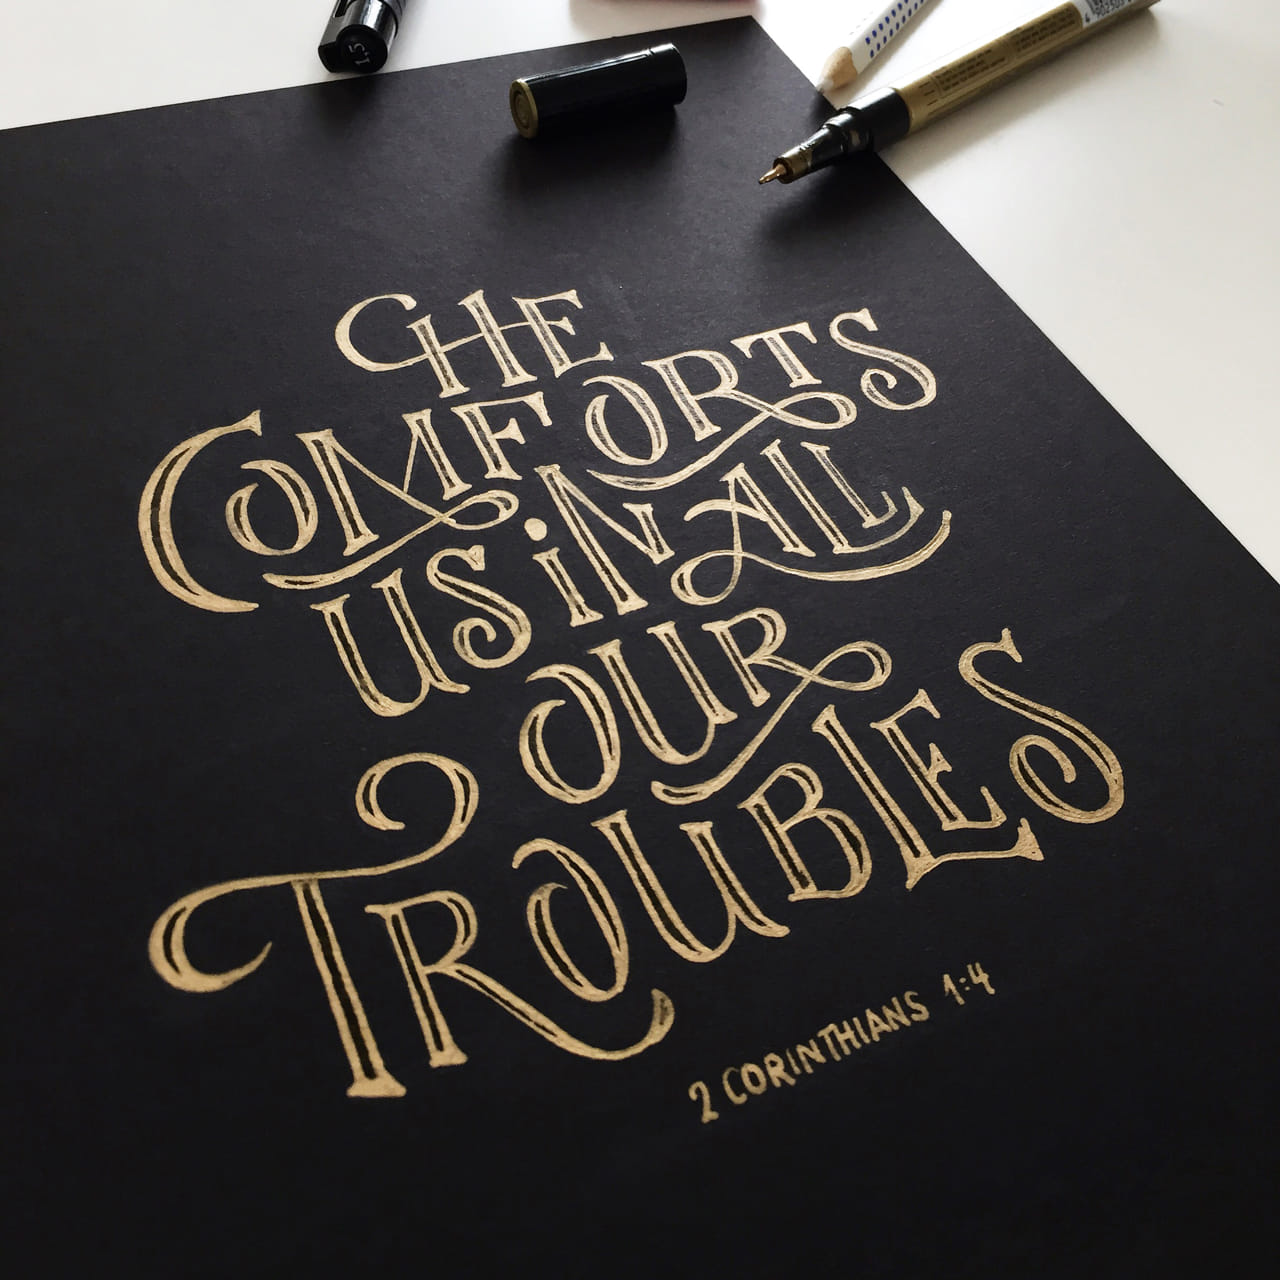 HE
COMFORTS
US iN ALL
OUR
TROUBLES
2 CORINTHIANS 1:4
1,5